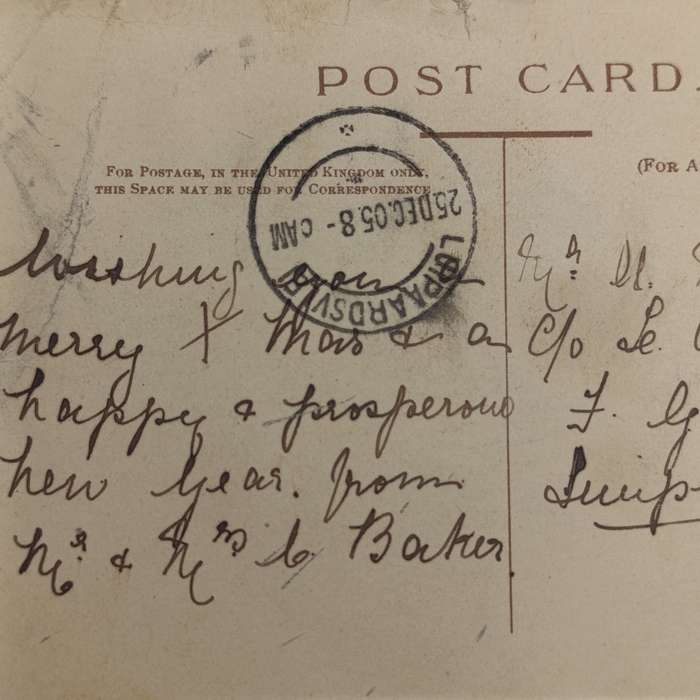 POST CARD.
FOR POSTAGE, IN THE UNITED KINGDOM ONLY,
THIS SPACE MAY BE USED FOR CORRESPONDENCE
(FOR A
25 DEC.05.8 - CAM
LUIPAARDSVLEI
Wishing you a
merry Xmas & a
happy & prosperous
new year. from
Mr & Mrs C Baker
Mr H.
C/o Le.
F. G
Luip